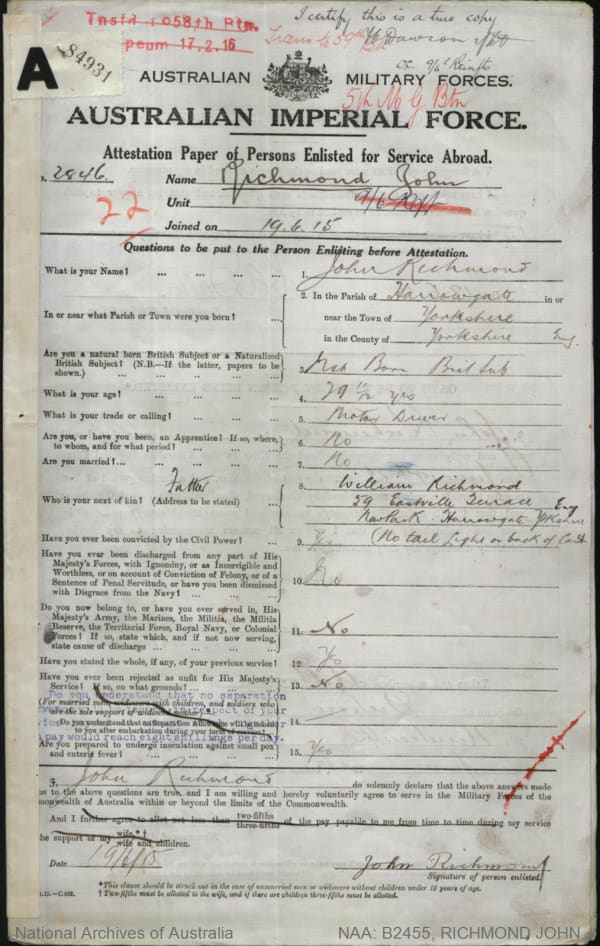 Tnsfd to 58th Btn.
peum 17.2.16
I certify this is a true copy
Trans to 59th Btn
A
84931
AUSTRALIAN MILITARY FORCES.
5th M G Btn
AUSTRALIAN IMPERIAL FORCE.
Attestation Paper of Persons Enlisted for Service Abroad.
2846. Name Richmond John
22
Unit
Joined on 19.6.15
Questions to be put to the Person Enlisting before Attestation.
What is your Name? ... 1. John Richmond
In or near what Parish or Town were you born? ... 2. In the Parish of Harrowgate in or
near the Town of Yorkshire
in the County of Yorkshire Eng.
Are you a natural born British Subject or a Naturalised
British Subject? (N.B.—If the latter, papers to be
shown.) ... 3. Nat Born Brit Sub
What is your age? ... 4. 29 yrs
What is your trade or calling? ... 5. Motor Driver
Are you, or have you been, an Apprentice? If so, where,
to whom, and for what period? ... 6. No
Are you married? ... 7. No
Father
Who is your next of kin? (Address to be stated) ... 8. William Richmond
59 Eastville Terrace Eng
New Park Harrowgate Yorkshire
Have you ever been convicted by the Civil Power? ... 9. Yes (No tail light on back of Car)
Have you ever been discharged from any part of His
Majesty's Forces, with Ignominy, or as Incorrigible and
Worthless, or on account of Conviction of Felony, or of a
Sentence of Penal Servitude, or have you been dismissed
with Disgrace from the Navy? ... 10. No
Do you now belong to, or have you ever served in, His
Majesty's Army, the Marines, the Militia, the Militia
Reserve, the Territorial Force, Royal Navy, or Colonial
Forces? If so, state which, and if not now serving,
state cause of discharge ... 11. No
Have you stated the whole, if any, of your previous service? 12. Yes
Have you ever been rejected as unfit for His Majesty's
Service? If so, on what grounds? ... 13. No
Do you understand that no separation
(For married men, widowers with children, and soldiers who
are the sole support of widowed mother)
Do you understand that no Separation Allowance will be issued
to you after embarkation during your term of service? 14.
pay would reach eight shillings per day.
Are you prepared to undergo inoculation against small pox
and enteric fever? ... 15. Yes
I, John Richmond do solemnly declare that the above answers made
me to the above questions are true, and I am willing and hereby voluntarily agree to serve in the Military Forces of the
monwealth of Australia within or beyond the limits of the Commonwealth.
And I further agree to allot not less than two-fifths three-fifths of the pay payable to me from time to time during my service
the support of my wife*† wife and children.
Date 19/6/15 John Richmond
Signature of person enlisted.
*This clause should be struck out in the case of unmarried men or widowers without children under 18 years of age.
† Two-fifths must be allotted to the wife, and if there are children three-fifths must be allotted.
National Archives of Australia NAA: B2455, RICHMOND JOHN